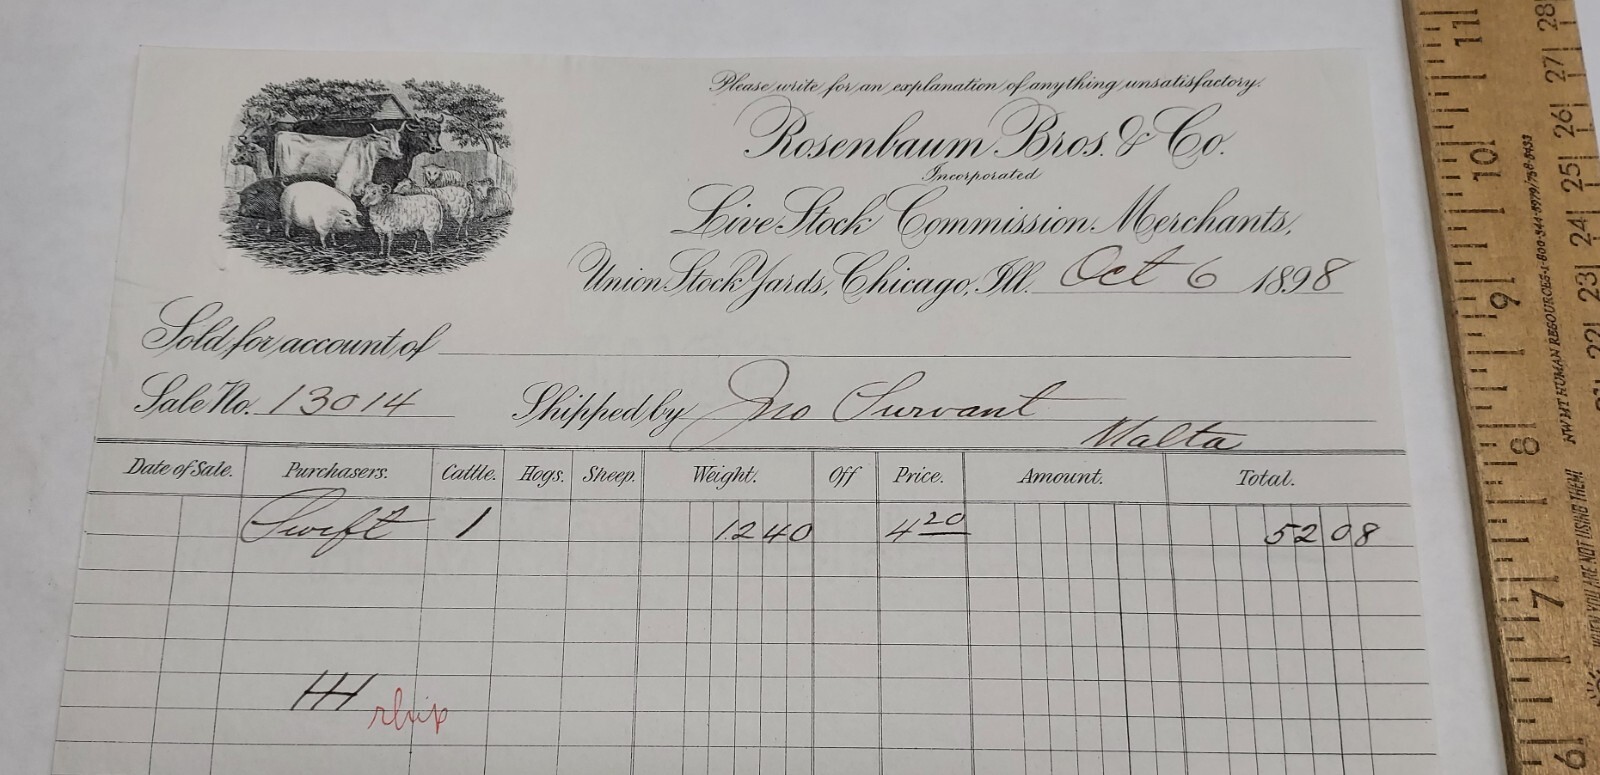 Please write for an explanation of anything unsatisfactory.
Rosenbaum Bros. & Co.
Incorporated
Live Stock Commission Merchants,
Union Stock Yards, Chicago, Ill. Oct 6 1898
Sold for account of
Sale No. 13014 Shipped by Jno Survant
Malta
Date of Sale. Purchasers. Cattle. Hogs. Sheep. Weight. Off Price. Amount. Total.
Swift 1 1240 4 20 52 08
rhip
11 10 9 8 7 6
28 27 26 25 24 23 22 21
NW MT HUMAN RESOURCES-1-800-344-8979/758-8433
WHEN YOU ARE NOT USING THEM!